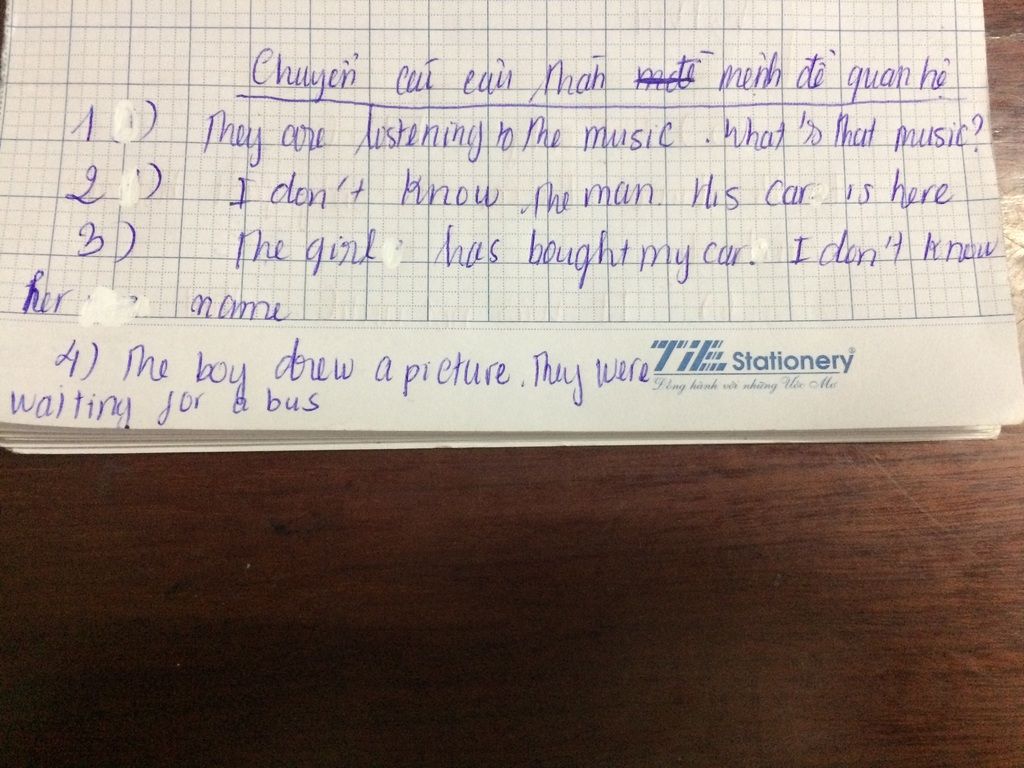 Chuyển cái câu thàn mđề mệnh đề quan hệ
1) They are listening to the music. What's that music?
2) I don't know the man. His car is here
3) The girl has bought my car. I don't know
her name
4) The boy drew a picture. They were
TiE Stationery®
Đồng hành với những Ước Mơ
waiting for a bus